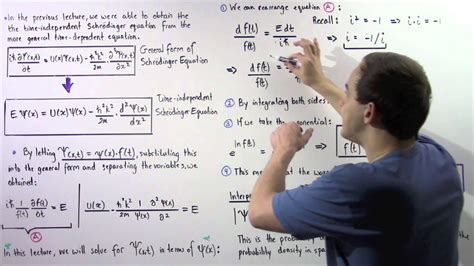 • In the previous lecture, we were able to obtain the
the time-independent Schrödinger equation from the
more general time-dependent equation.
iℏ ∂Ψ(x,t)/∂t = U(x)Ψ(x,t) - ℏ²/2m · ∂²Ψ(x,t)/∂x²
General form of
Schrödinger Equation
E Ψ(x) = U(x)Ψ(x) - ℏ²/2m · d²Ψ(x)/dx²
Time-independent
Schrödinger Equation
• By letting Ψ(x,t) = Ψ(x)·f(t), substituting this
into the general form and separating the variables, we
obtained:
iℏ 1/f(t) ∂f(t)/∂t = E
U(x) - ℏ²/2m 1/Ψ(x) ∂²Ψ(x)/∂x² = E
A
• In this lecture, we will solve for Ψ(x,t) in terms of Ψ(x).
① We can rearrange equation A:
Recall: i² = -1 ⇒ i·i = -1
⇒ i = -1/i
df(t)/f(t) = E dt/iℏ
⇒ df(t)/f(t) =
② By integrating both sides
③ If we take the exponential:
ln f(t)
⇒ f(t)
④ This means that the
This is the
probability density in